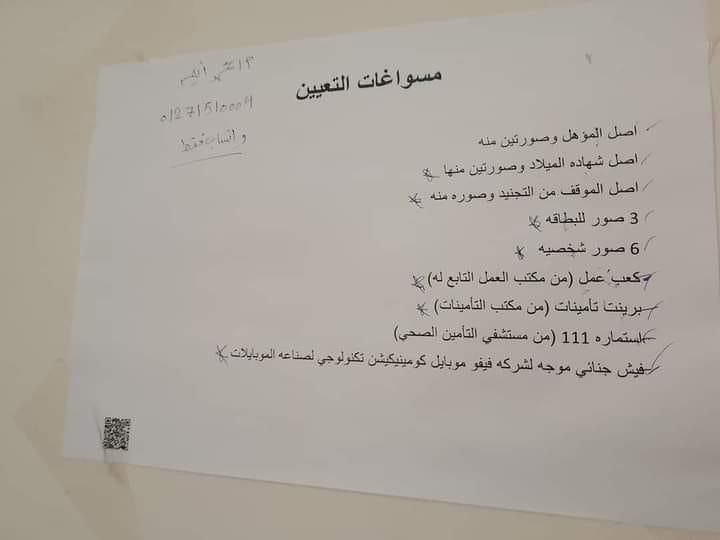 مسواغات التعيين
01271510009
واتساب فقط
اصل المؤهل وصورتين منه
اصل شهاده الميلاد وصورتين منها
اصل الموقف من التجنيد وصوره منه
3 صور للبطاقه
6 صور شخصيه
كعب عمل (من مكتب العمل التابع له)
برينت تأمينات (من مكتب التأمينات)
استماره 111 (من مستشفي التأمين الصحي)
فيش جنائي موجه لشركه فيفو موبايل كومينيكيشن تكنولوجي لصناعه الموبايلات